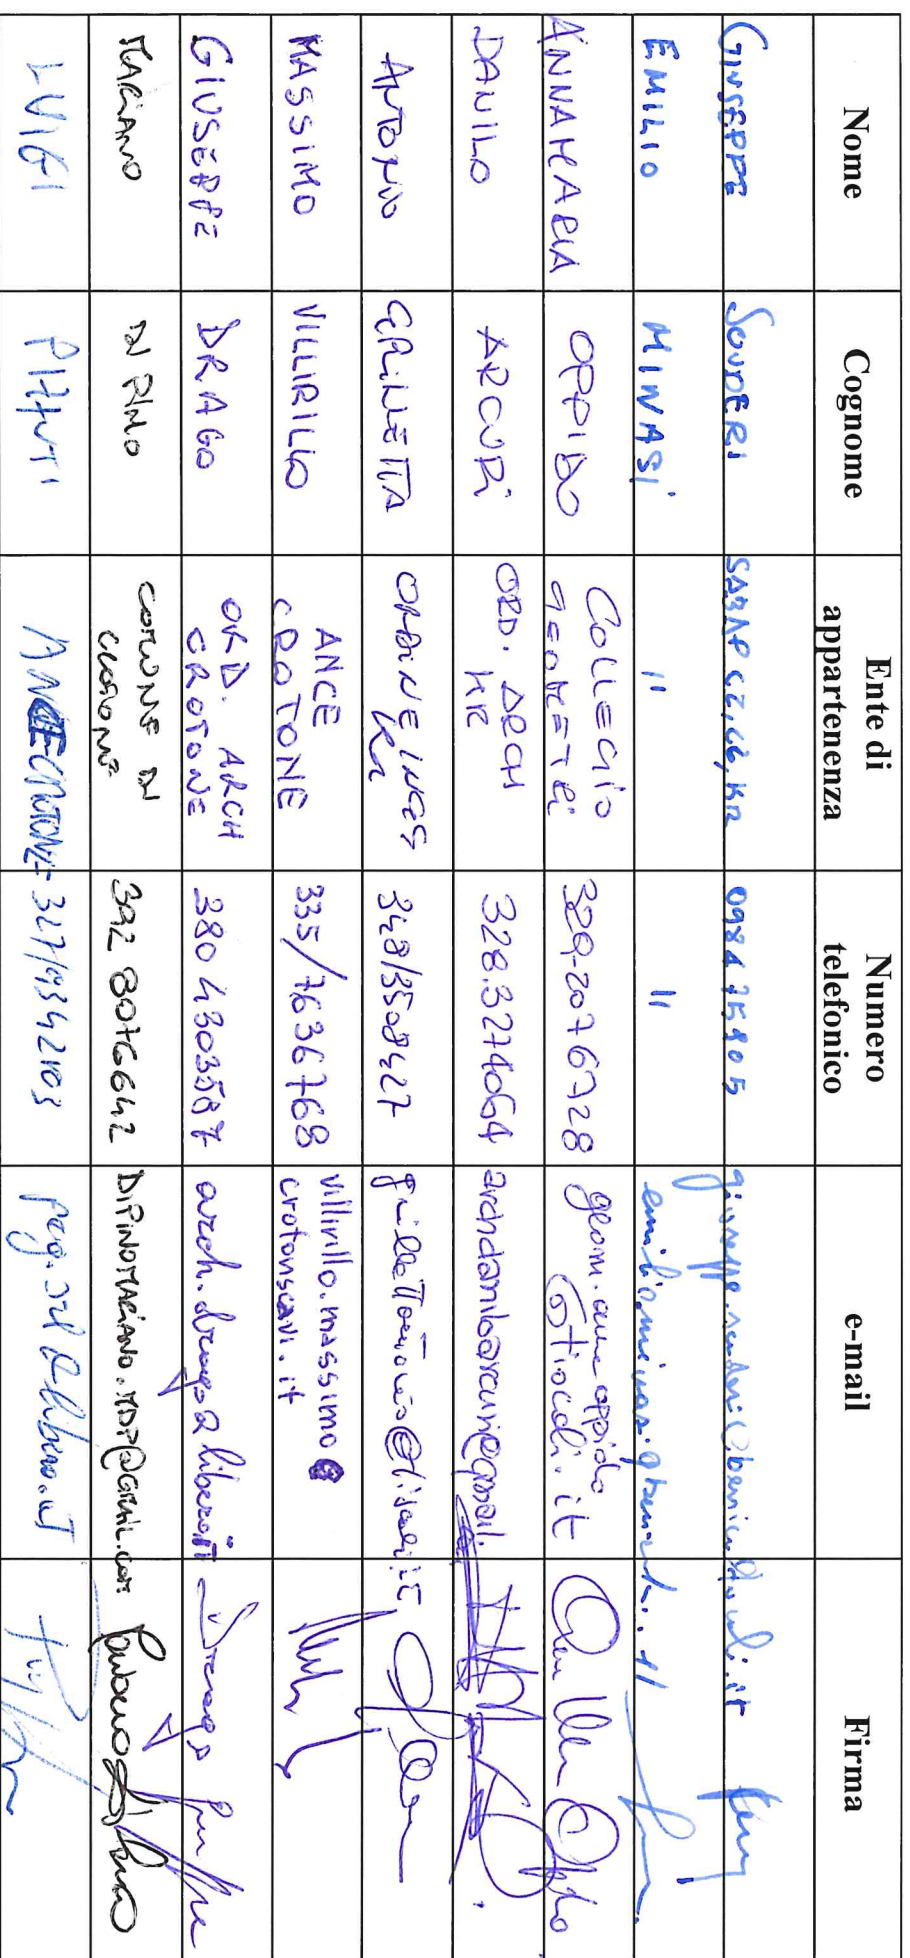 Nome
Cognome
Ente di
appartenenza
Numero
telefonico
e-mail
Firma
GIUSEPPE
SOUDERI
SABAP CZ, CS, KR
EMILIO
MINASI
"
"
ANNAMARIA
OPPIDO
COLLEGIO
GEOMETRI
329-2076728
geom.annaoppido
@tiscali.it
DANILO
ARCURI
ORD. ARCH
KR
328.3274064
archdaniloarcuri@gmail.
ANTONIO
GRILLETTA
ORDINE INGEG
KR
348/3508427
MASSIMO
VILLIRILLO
ANCE
CROTONE
335/7636768
villirillo.massimo@
crotonscavi.it
GIUSEPPE
DRAGO
ORD. ARCH
CROTONE
380 4303587
arch.drago@libero.it
MARIANO
DI PINO
COMUNE DI
CROTONE
392 8076642
DIPINOMARIANO.MDP@GMAIL.COM
LUIGI
ANCE CROTONE